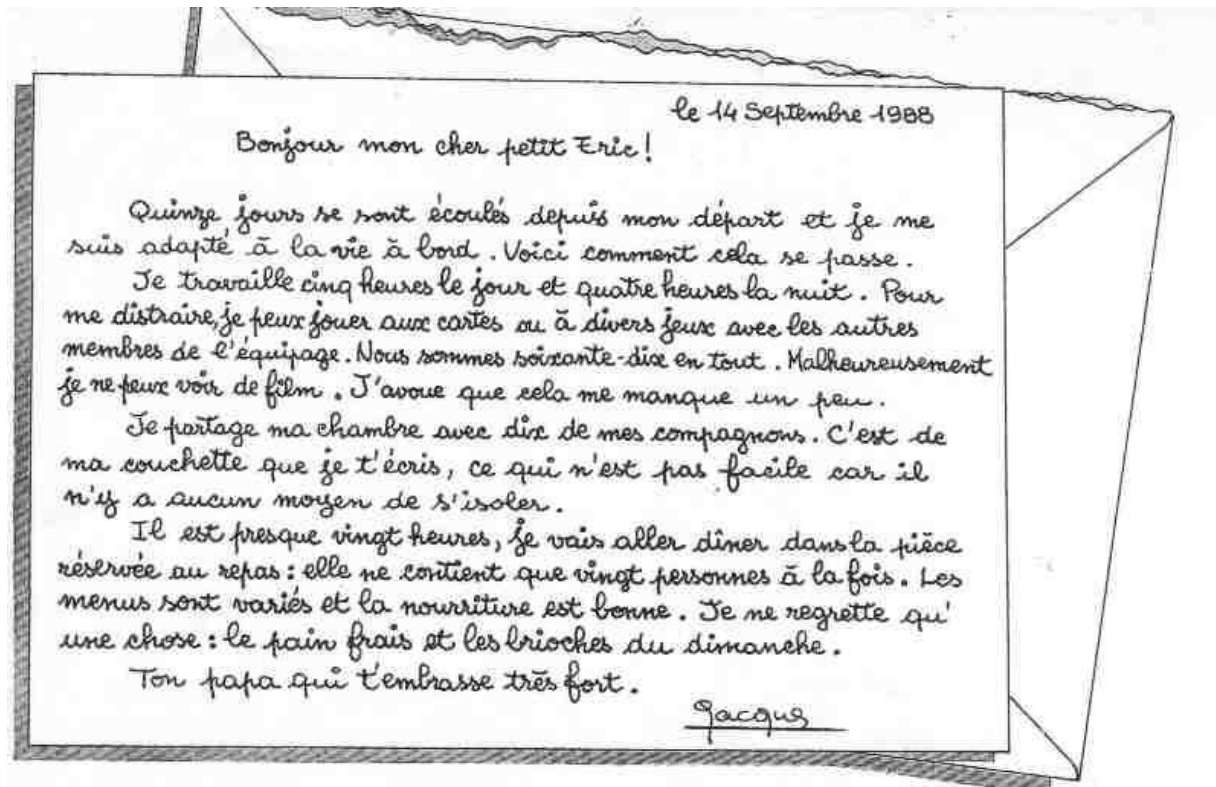 le 14 Septembre 1988
Bonjour mon cher petit Eric !
Quinze jours se sont écoulés depuis mon départ et je me
suis adapté à la vie à bord . Voici comment cela se passe .
Je travaille cinq heures le jour et quatre heures la nuit . Pour
me distraire, je peux jouer aux cartes ou à divers jeux avec les autres
membres de l'équipage . Nous sommes soixante-dix en tout . Malheureusement
je ne peux voir de film . J'avoue que cela me manque un peu .
Je partage ma chambre avec dix de mes compagnons . C'est de
ma couchette que je t'écris, ce qui n'est pas facile car il
n'y a aucun moyen de s'isoler .
Il est presque vingt heures, je vais aller dîner dans la pièce
réservée au repas : elle ne contient que vingt personnes à la fois . Les
menus sont variés et la nourriture est bonne . Je ne regrette qu'
une chose : le pain frais et les brioches du dimanche .
Ton papa qui t'embrasse très fort .
Jacques